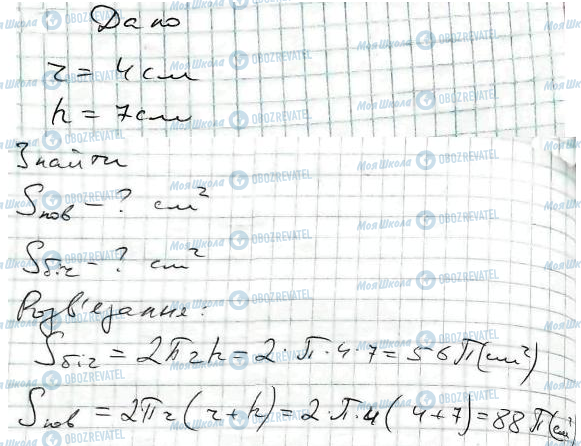 Дано
r = 4 см
h = 7 см
Знайти
Sпов - ? см²
Sбіч - ? см²
Розв'язання:
Sбіч = 2πrh = 2·π·4·7 = 56π(см²)
Sпов = 2πr(r+h) = 2·π·4(4+7) = 88π(см²